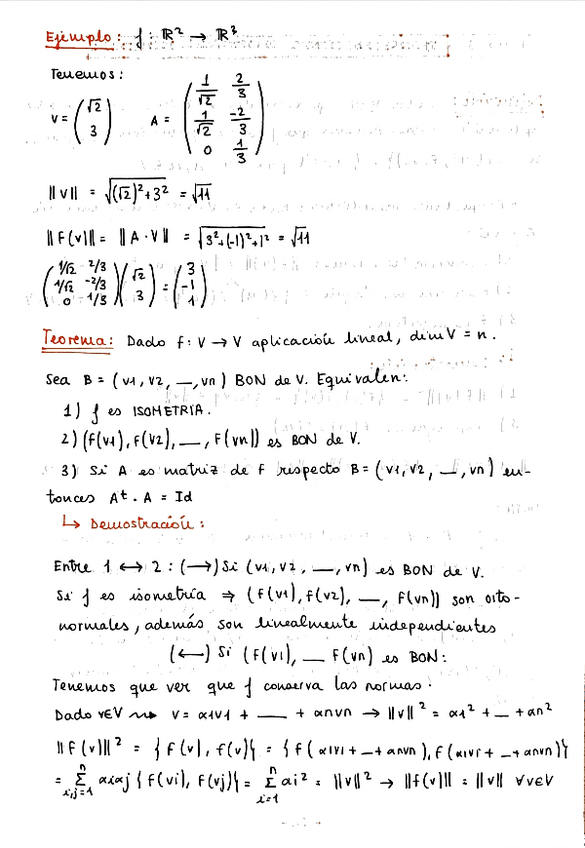 Ejemplo: f: ℝ² → ℝ³
Tenemos:
V = (√2 3) A = (1/√2 2/3 1/√2 -2/3 0 1/3)
||v|| = √((√2)²+3²) = √11
||F(v)|| = ||A·V|| = √(3²+(-1)²+1² = √11
(1/√2 2/3 1/√2 -2/3 0 1/3)(√2 3) = (3 -1 1)
Teorema: Dado f: V → V aplicación lineal, dim V = n.
Sea B = (v1, v2, __, vn) BON de V. Equivalen:
1) f es ISOMETRIA.
2) (F(v1), F(v2), __, F(vn)) es BON de V.
3) Si A es matriz de f respecto B = (v1, v2, __, vn) en-
tonces Aᵗ · A = Id
↳ Demostración:
Entre 1 ↔ 2: (→) Si (v1, v2, __, vn) es BON de V.
Si f es isometría ⇒ (f(v1), f(v2), __, F(vn)) son orto-
normales, además son linealmente independientes
(←) Si (F(v1), __ F(vn) es BON:
Tenemos que ver que f conserva las normas.
Dado v∈V ⇝ v = α1v1 + __ + αnvn → ||v||² = α1² + _ + αn²
||F(v)||² = {f(v), f(v)} = {f(α1v1 + _ + αnvn), F(α1v1 + _ + αnvn)}
= Σ i,j=1 n αiαj {f(vi), F(vj)} = Σ i=1 n αi² = ||v||² → ||f(v)|| = ||v|| ∀v∈V